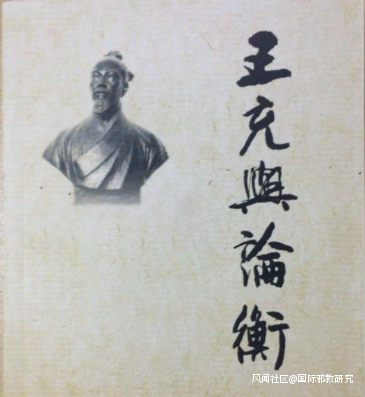 王充與論衡
风闻社区@国际邪教研究